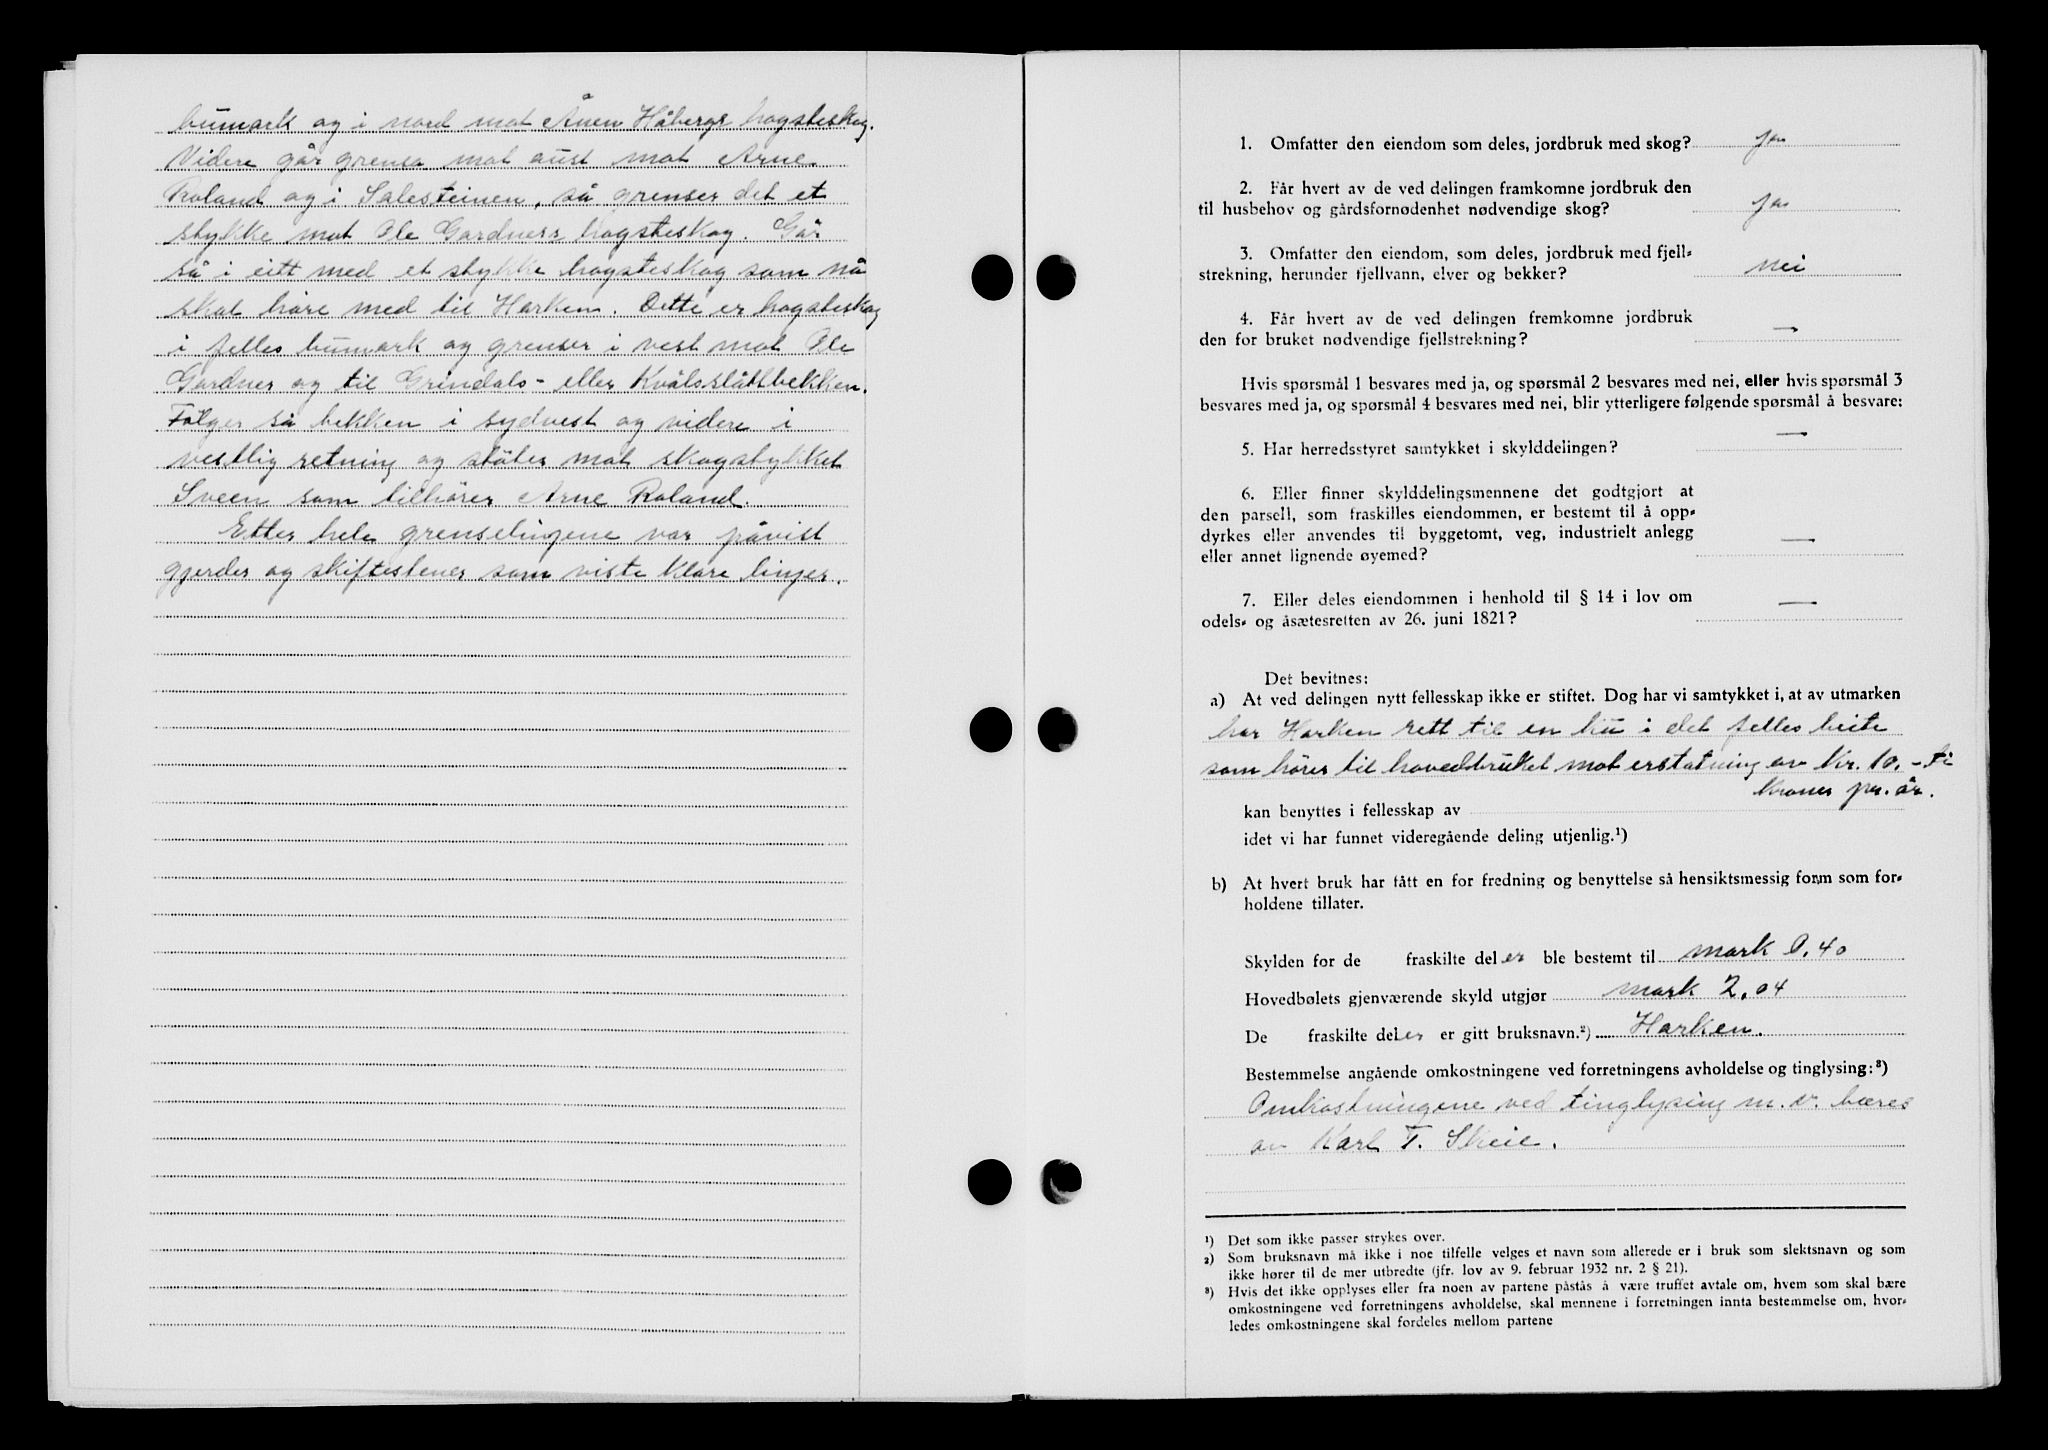 bumark og i nord mot Ånen Håbergs hogsteskog.
Videre går grensa mot aust mot Arne
Roland og i Salesteinen, så grenser det et
stykke mot Ole Gardners hogsteskog. Går
så i eitt med et stykke hogsteskog som nå
skal høre med til Harken. Dette er hogsteskog
i felles bumark og grenser i vest mot Ole
Gardner og til Grindals- eller Kvålsslåttbekken.
Følger så bekken i sydvest og videre i
vestlig retning og støter mot skogstykket
Sveen som tilhører Arne Roland.
Etter hele grenselinjene var påvist
gjerder og skiftestener som viste klare linjer.
1. Omfatter den eiendom som deles, jordbruk med skog? ja
2. Får hvert av de ved delingen framkomne jordbruk den
til husbehov og gårdsfornødenhet nødvendige skog? ja
3. Omfatter den eiendom, som deles, jordbruk med fjell-
strekning, herunder fjellvann, elver og bekker? nei
4. Får hvert av de ved delingen fremkomne jordbruk
den for bruket nødvendige fjellstrekning? —
Hvis spørsmål 1 besvares med ja, og spørsmål 2 besvares med nei, eller hvis spørsmål 3
besvares med ja, og spørsmål 4 besvares med nei, blir ytterligere følgende spørsmål å besvare:
5. Har herredsstyret samtykket i skylddelingen? —
6. Eller finner skylddelingsmennene det godtgjort at
den parsell, som fraskilles eiendommen, er bestemt til å opp-
dyrkes eller anvendes til byggetomt, veg, industrielt anlegg
eller annet lignende øyemed? —
7. Eller deles eiendommen i henhold til § 14 i lov om
odels- og åsætesretten av 26. juni 1821? —
Det bevitnes:
a) At ved delingen nytt fellesskap ikke er stiftet. Dog har vi samtykket i, at av utmarken
har Harken rett til en ku i det felles beite
som hører til hovedbruket mot erstatning av kr. 10,- ti
kroner pr. år.
kan benyttes i fellesskap av
idet vi har funnet videregående deling utjenlig.¹)
b) At hvert bruk har fått en for fredning og benyttelse så hensiktsmessig form som for-
holdene tillater.
Skylden for de fraskilte deler ble bestemt til mark 0,40
Hovedbølets gjenværende skyld utgjør mark 2,04
De fraskilte deler er gitt bruksnavn.²) Harken.
Bestemmelse angående omkostningene ved forretningens avholdelse og tinglysing:³)
Omkostningene ved tinglysing m.v. bæres
av Karl T. Skeie.
¹) Det som ikke passer strykes over.
²) Som bruksnavn må ikke i noe tilfelle velges et navn som allerede er i bruk som slektsnavn og som
ikke hører til de mer utbredte (jfr. lov av 9. februar 1932 nr. 2 § 21).
³) Hvis det ikke opplyses eller fra noen av partene påstås å være truffet avtale om, hvem som skal bære
omkostningene ved forretningens avholdelse, skal mennene i forretningen innta bestemmelse om, hvor-
ledes omkostningene skal fordeles mellom partene